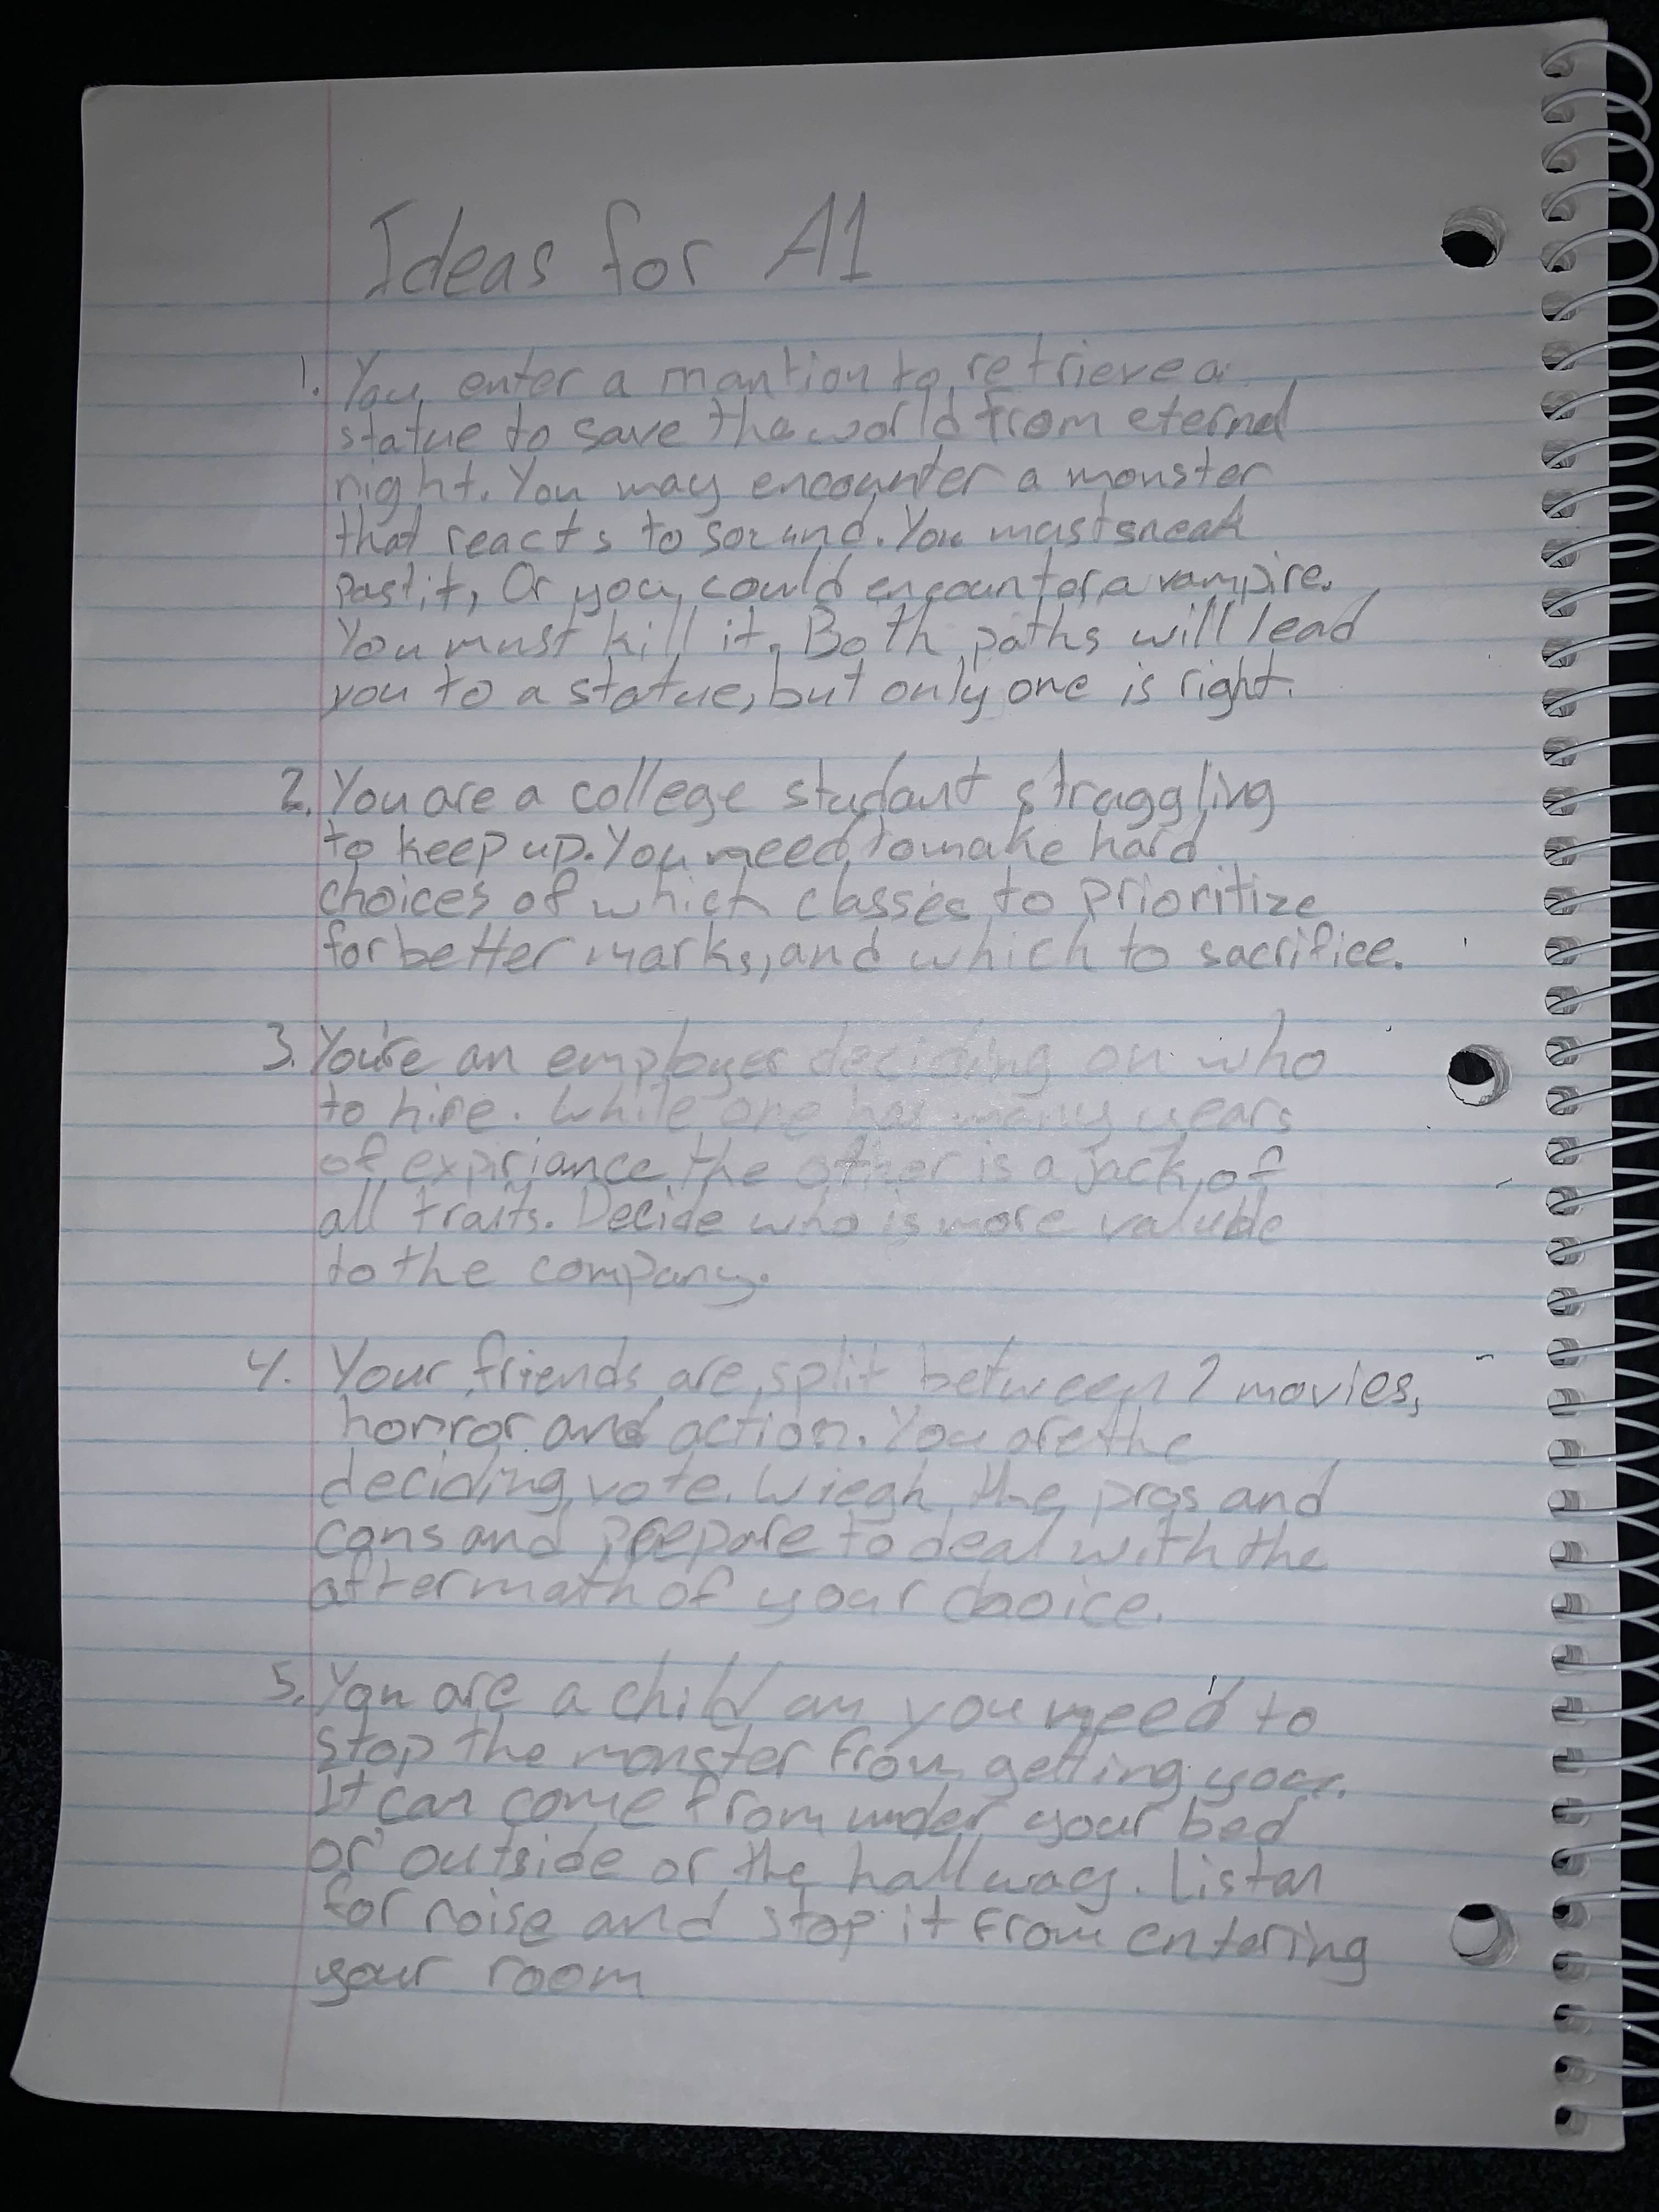 Ideas for A1
1. You enter a mantion to retrieve a
statue to save the world from eternal
night. You may encounter a monster
that reacts to sound. You must sneak
past it, Or you could encounter a vampire.
You must kill it. Both paths will lead
you to a statue, but only one is right.
2. You are a college student struggling
to keep up. You need to make hard
choices of which classes to prioritize
for better marks, and which to sacrifice.
3. You're an employer deciding on who
to hire. While one has many years
of expiriance the other is a jack of
all traits. Decide who is more valuble
to the company.
4. Your friends are split between 2 movies,
horror and action. You are the
deciding vote. Wiegh the pros and
cons and prepare to deal with the
aftermath of your choice.
5. You are a child an you need to
stop the monster from getting you.
It can come from under your bed
or outside or the hallway. Listen
for noise and stop it from entering
your room